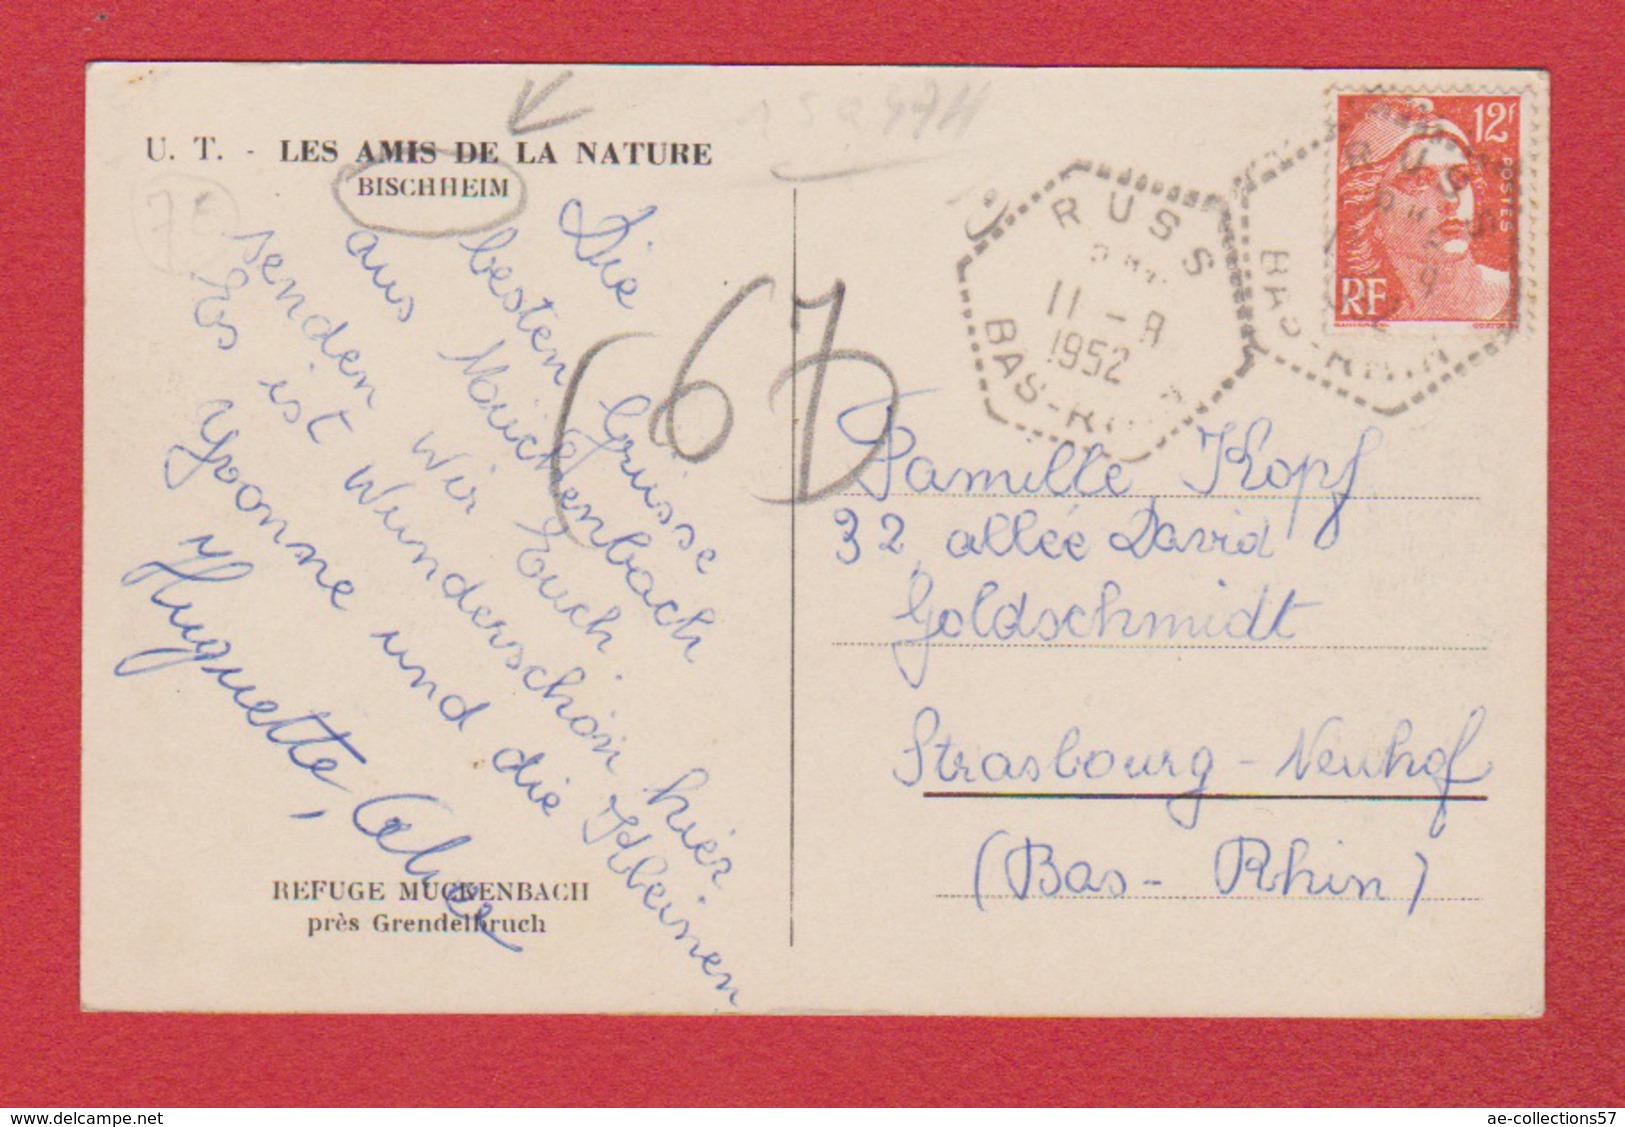 U. T. - LES AMIS DE LA NATURE
BISCHHEIM
Die
besten Grüsse
aus Mückenbach
senden Wir Euch.
Es ist Wunderschön hier
Yvonne und die Kleinen
Huguette,
REFUGE MUCKENBACH
près Grendelbruch
(67)
RUSS
11-8
1952
BAS-R
12F
POSTES
RF
RUSS
BAS-RHIN
Famille Kopf
32, allée David
Goldschmidt
Strasbourg - Neuhof
(Bas-Rhin)
www.delcampe.net
ae-collections57